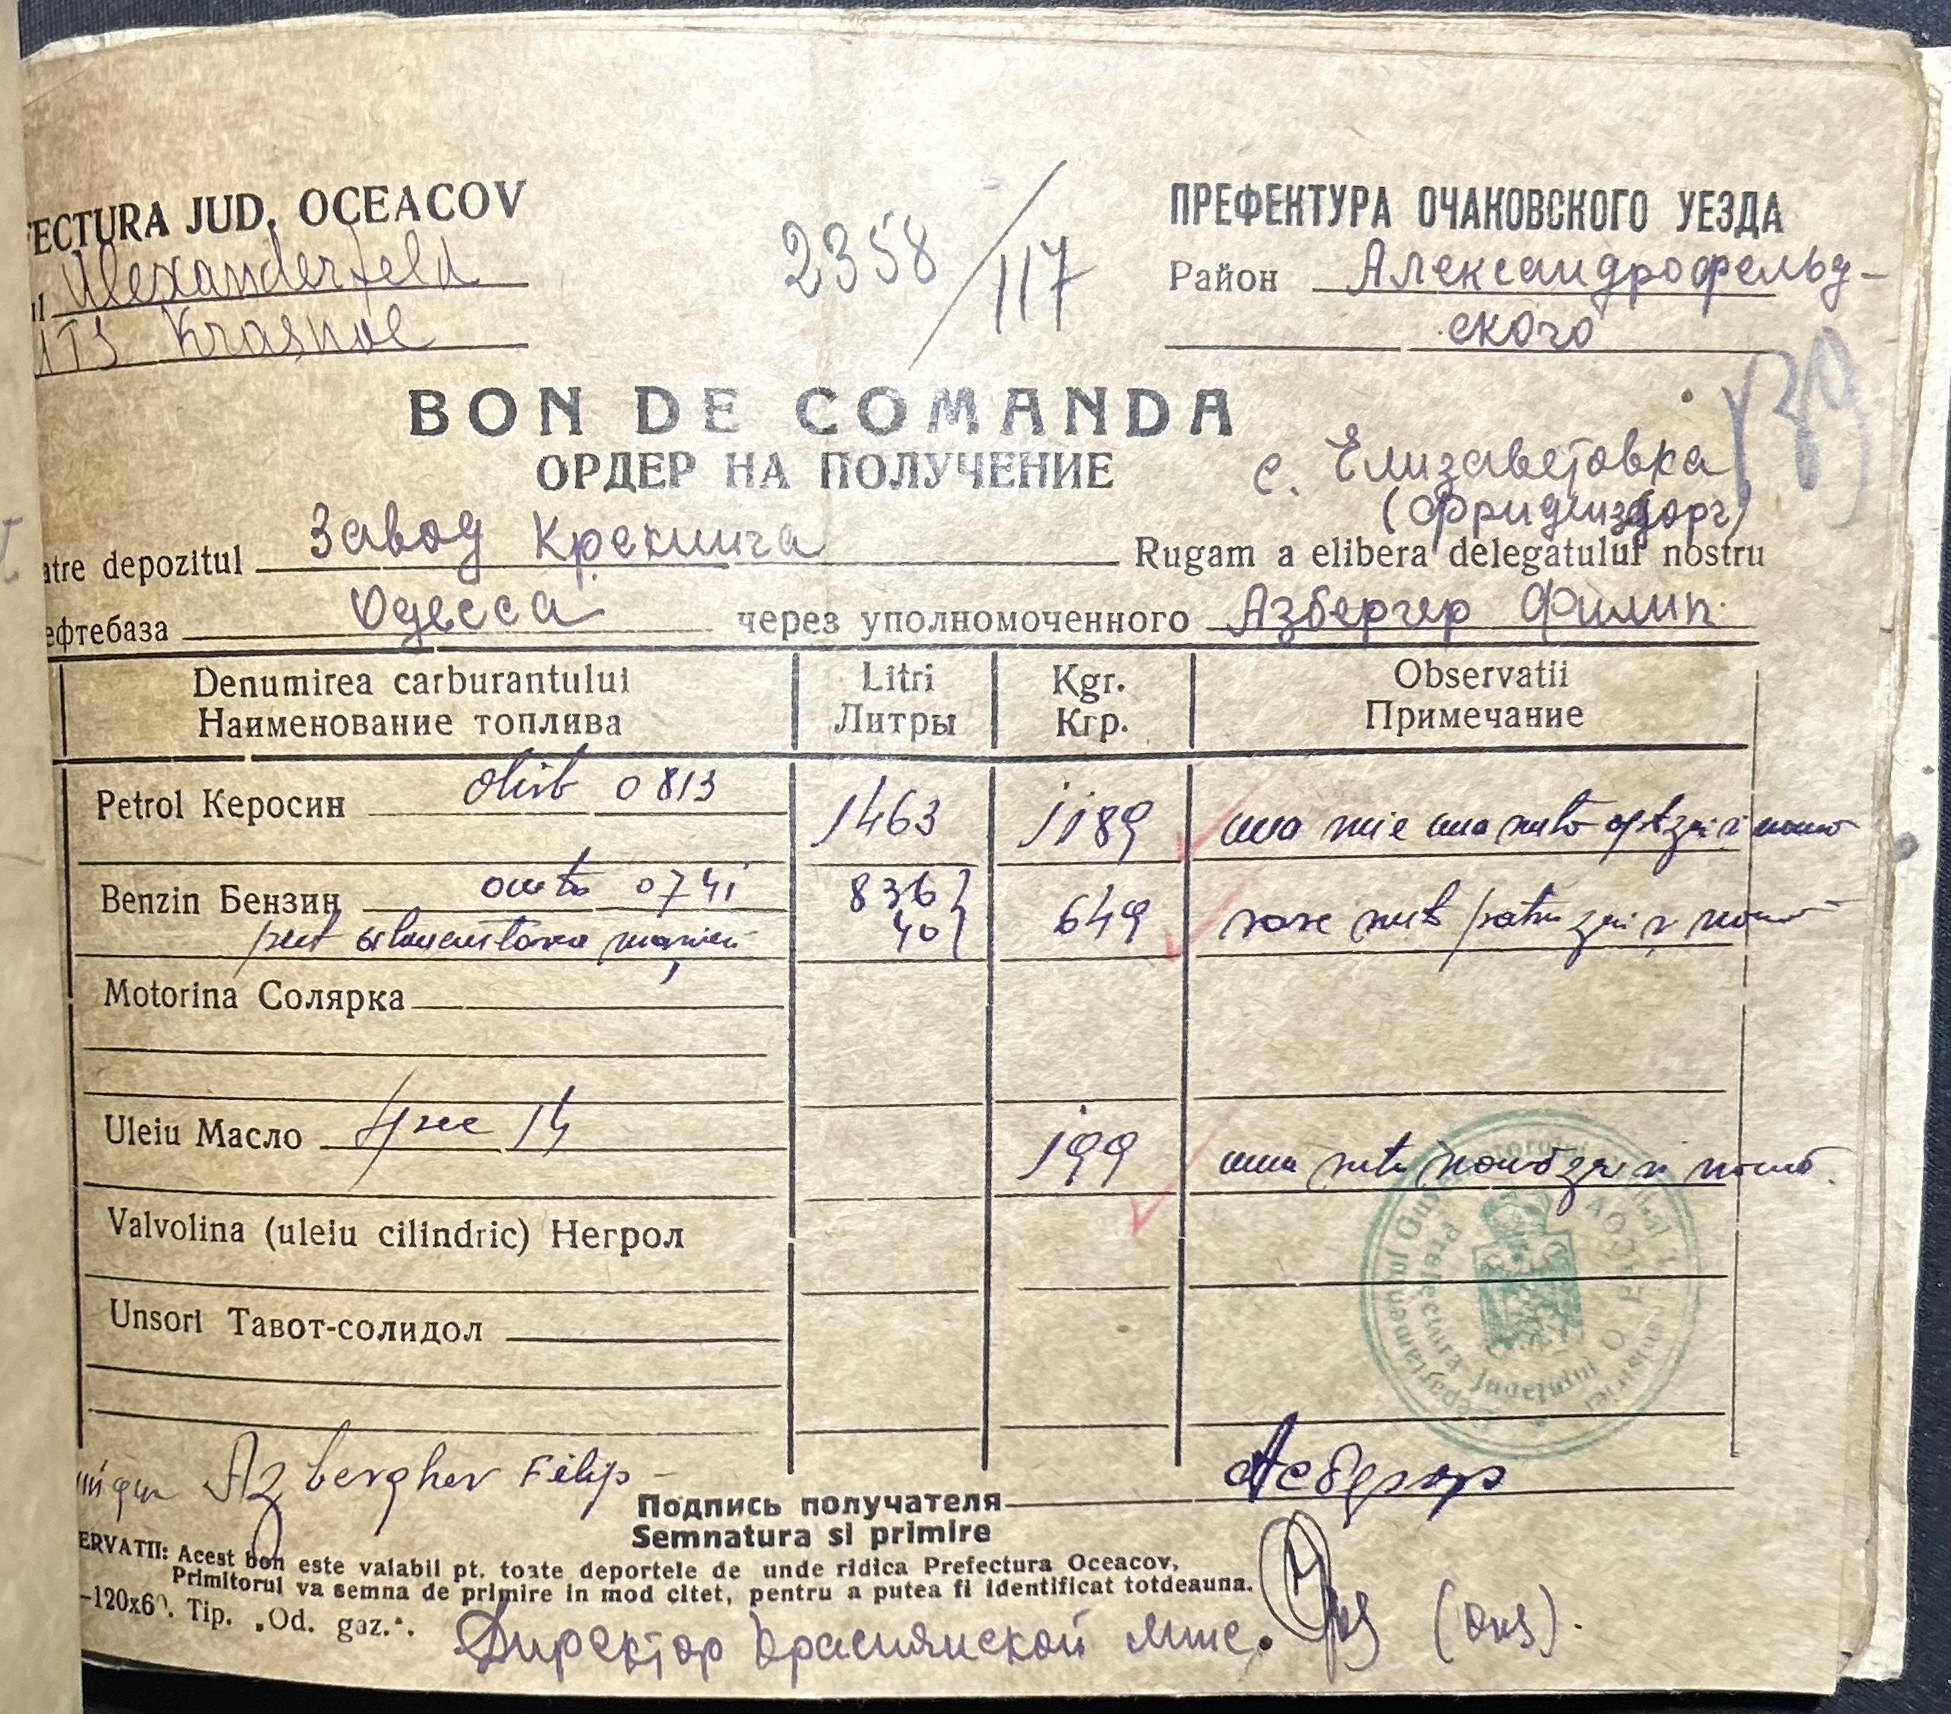 FECTURA JUD. OCEACOV
2358/117
ПРЕФЕКТУРА ОЧАКОВСКОГО УЕЗДА
Alexanderfeld
Район Александрофельд-
MTS Krasnoe
ского
BON DE COMANDA
ОРДЕР НА ПОЛУЧЕНИЕ
с. Елизаветовка
(Фридensдорг)
atre depozitul Завод Крекинга Rugam a elibera delegatului nostru
ефтебаза Одесса через уполномоченного Азбергер Филип.
Denumirea carburantului Litri Kgr. Observatii
Наименование топлива Литры Кгр. Примечание
Petrol Керосин 0813 1463 1189 una mie una suta optzeci si noua
Benzin Бензин auto 0741 836 649 sase sute patru zeci si noua
40
Motorina Солярка
Uleiu Масло 14 199 una suta noua zeci si noua.
Valvolina (uleiu cilindric) Негрол
Unsori Тавот-солидол
Azbergher Filip
Подпись получателя
Semnatura si primire
ERVATII: Acest bon este valabil pt. toate deportele de unde ridica Prefectura Oceacov,
Primitorul va semna de primire in mod citet, pentru a putea fi identificat totdeauna.
-120x60. Tip. „Od. gaz.".
Директор Краснянской мтс.